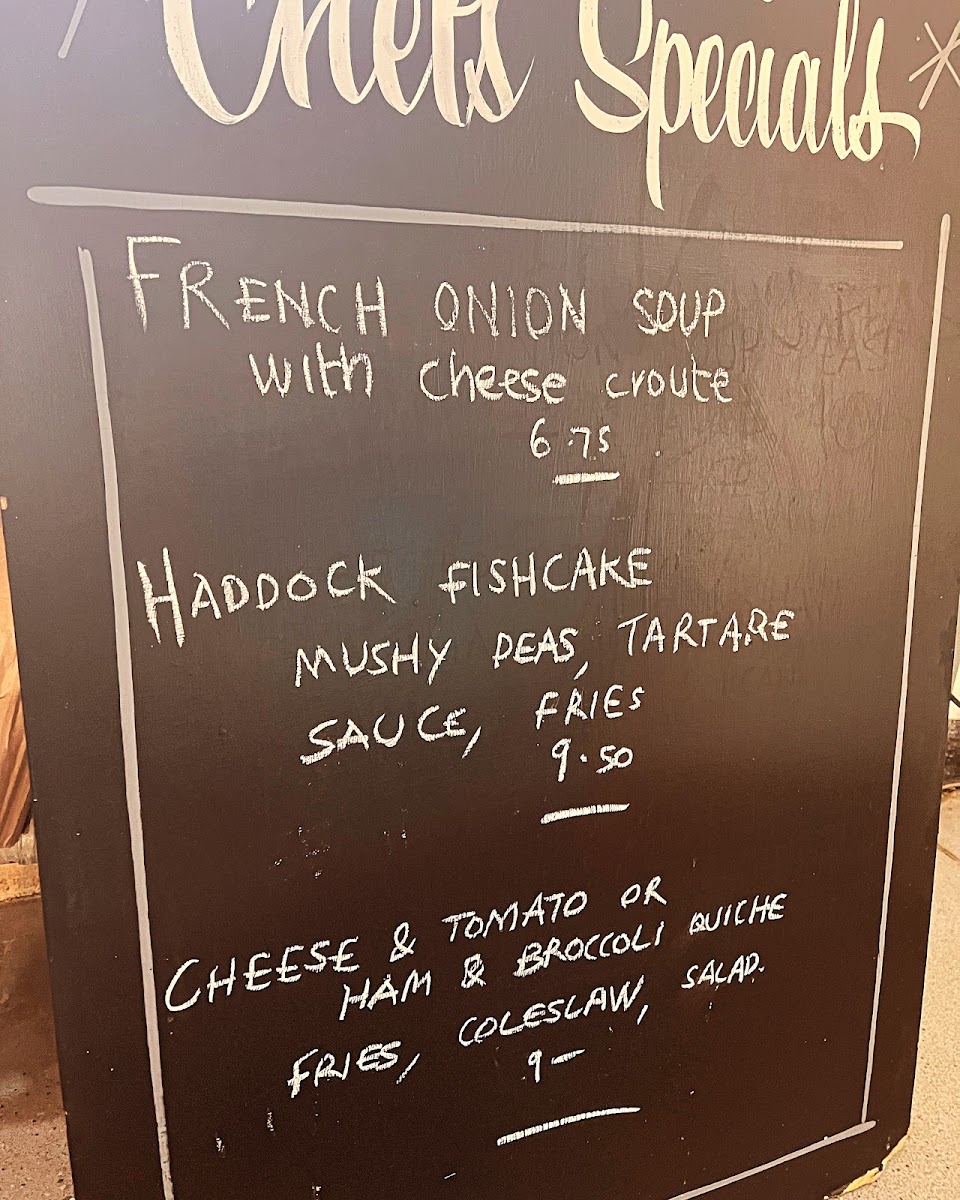 Chefs Specials
FRENCH ONION SOUP
with cheese croute
6.75
HADDOCK FISHCAKE
MUSHY PEAS, TARTARE
SAUCE, FRIES
9.50
CHEESE & TOMATO OR
HAM & BROCCOLI QUICHE
FRIES, COLESLAW, SALAD.
9—